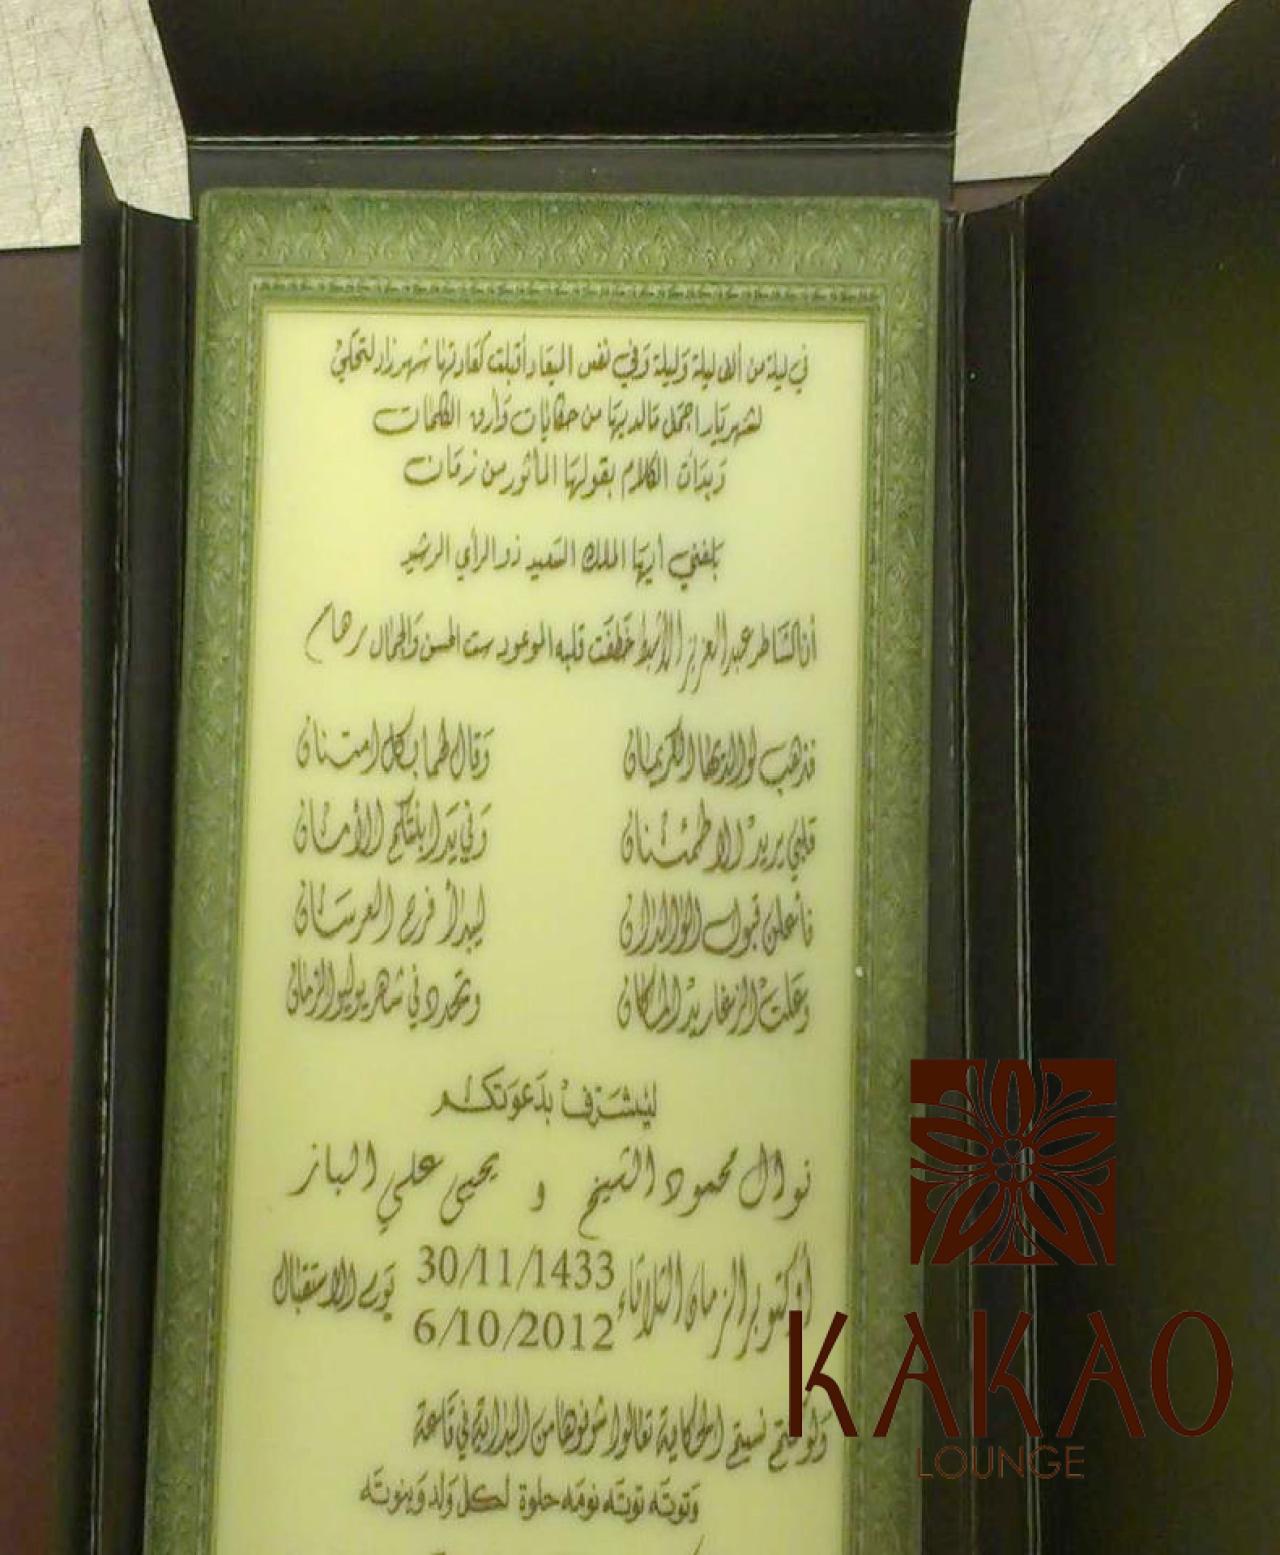 في ليلة من ألف ليلة وليلة وفي نفس الميعاد أقبلت كعادتها شهرزاد لتحكي
لشهريار أجمل مالديها من حكايات وأرق الكلمات
وبدأت الكلام بقولها المأثور من زمان
بلغني أيها الملك السعيد ذو الرأي الرشيد
أن الشاطر عبدالعزيز خطفت قلبه الموعود ست الحسن والجمال رهام
فذهب لوالديها الكريمان وقال لهما بكل امتنان
قلبي يريد الاطمئنان وفي يد ابنتكم الأمان
فأعلن قبول الوالدان ليبدأ فرح العرسان
وعلت الزغاريد المكان وتحدد في شهر يوليو الزمان
ليتشرف بدعوتكم
نوال محمود الشيخ و يحيى علي الباز
أكتوبر الزمان الثلاثاء 30/11/1433 يوم الاستقبال
6/10/2012
ولو حابين نسيتم الحكاية تعالوا شوفوها من البداية في قاعة
وتوته توته نومه حلوة لكل ولد وبنوته
KAKAO
LOUNGE